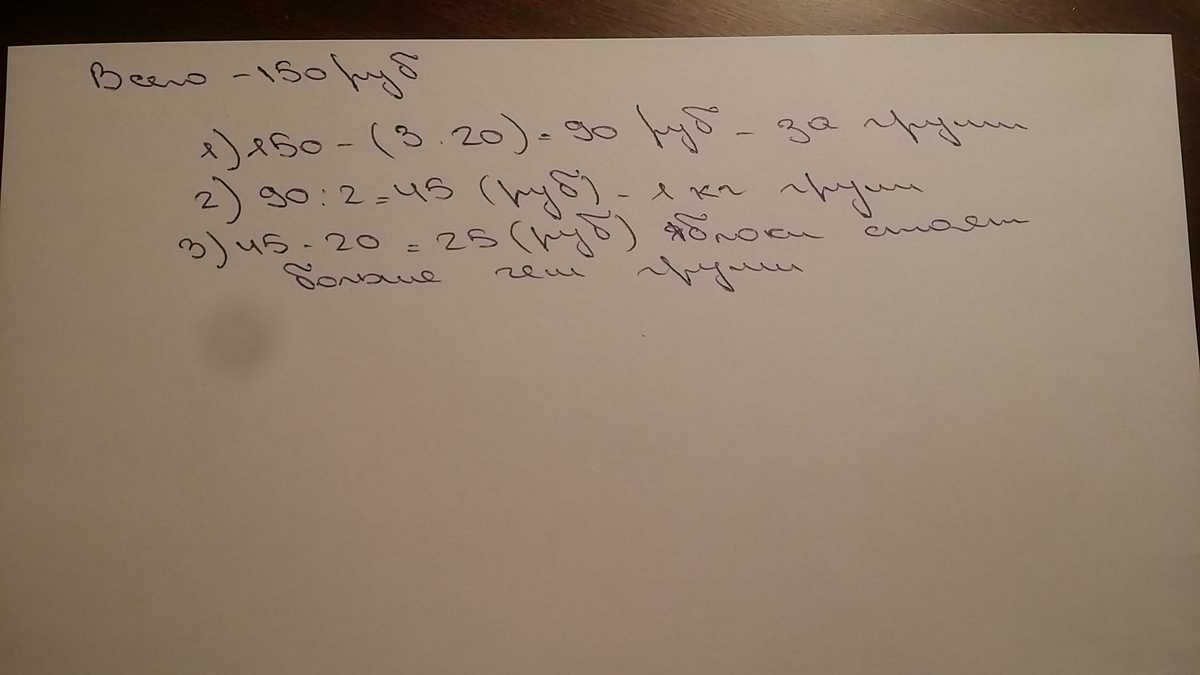 Всего - 150 руб
1) 150 - (3 · 20) = 90 руб - за груши
2) 90 : 2 = 45 (руб) - 1 кг груш
3) 45 - 20 = 25 (руб) яблоки стоят
больше чем груши